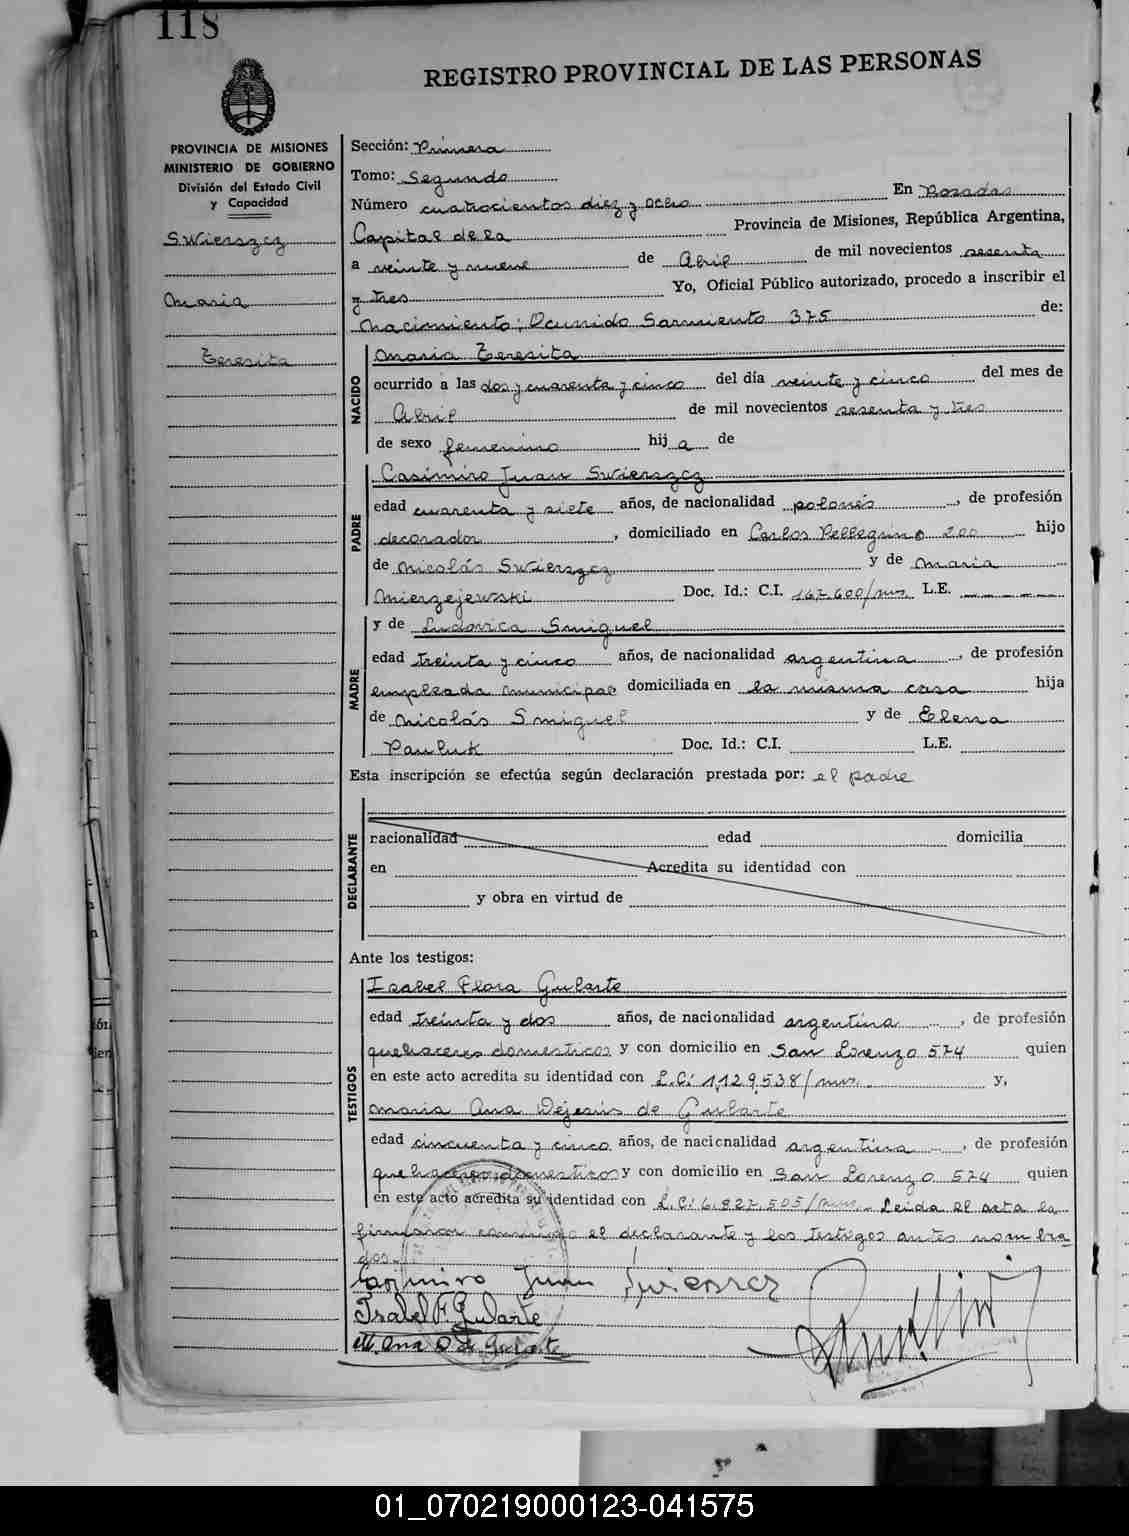 118
REGISTRO PROVINCIAL DE LAS PERSONAS
PROVINCIA DE MISIONES
MINISTERIO DE GOBIERNO
División del Estado Civil
y Capacidad
Swierszcz
Maria
Teresita
Sección: Primera
Tomo: Segundo
Número cuatrocientos diez y ocho En Posadas
Capital de la Provincia de Misiones, República Argentina,
a veinte y nueve de Abril de mil novecientos sesenta
y tres Yo, Oficial Público autorizado, procedo a inscribir el
Nacimiento; Ocurrido Sarmiento 375 de:
NACIDO
Maria Teresita
ocurrido a las dos y cuarenta y cinco del día veinte y cinco del mes de
Abril de mil novecientos sesenta y tres
de sexo femenino hij a de
PADRE
Casimiro Juan Swierszcz
edad cuarenta y siete años, de nacionalidad polonés, de profesión
decorador, domiciliado en Carlos Pellegrino 200 hijo
de Nicolás Swierszcz y de Maria
Mierzejewski Doc. Id.: C.I. 167.600/mns. L.E.
MADRE
y de Ludovica Smiguel
edad treinta y cinco años, de nacionalidad argentina, de profesión
empleada municipal domiciliada en la misma casa hija
de Nicolás Smiguel y de Elena
Pauluk Doc. Id.: C.I. L.E.
Esta inscripción se efectúa según declaración prestada por: el padre
DECLARANTE
racionalidad edad domicilia
en Acredita su identidad con
y obra en virtud de
Ante los testigos:
TESTIGOS
Isabel Flora Gularte
edad treinta y dos años, de nacionalidad argentina, de profesión
quehaceres domesticos y con domicilio en San Lorenzo 574 quien
en este acto acredita su identidad con L.C: 1,129,538/mns. y,
Maria Ana Dejesús de Gularte
edad cincuenta y cinco años, de nacicnalidad argentina, de profesión
quehaceres domesticos y con domicilio en San Lorenzo 574 quien
en este acto acredita su identidad con L.C: 6.827.505/mns. Leida el acta la
firmaron conmigo el declarante y los testigos antes nombra
dos.
Casimiro Juan Swierszcz
Isabel F. Gularte
M. Ana D de Gularte
01_070219000123-041575